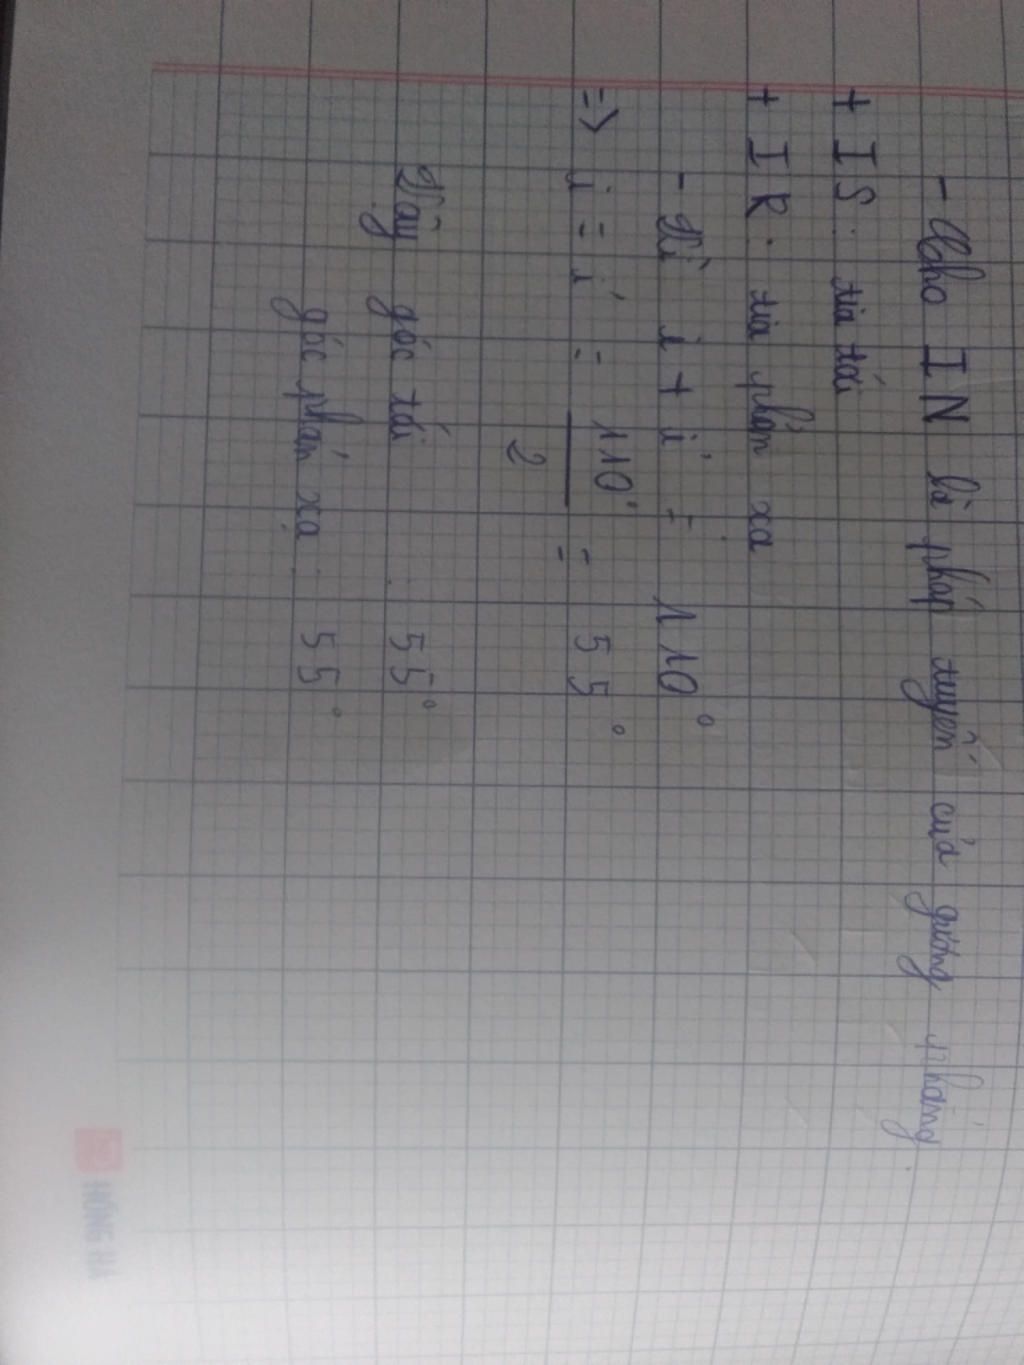 - Cho IN là pháp tuyến của gương phẳng.
+ IS: tia tới
+ IR: tia phản xạ
- Vì i + i' = 110°
=> i = i' = 110° / 2 = 55°
Vậy góc tới : 55°
góc phản xạ : 55°
HỒNG HÀ